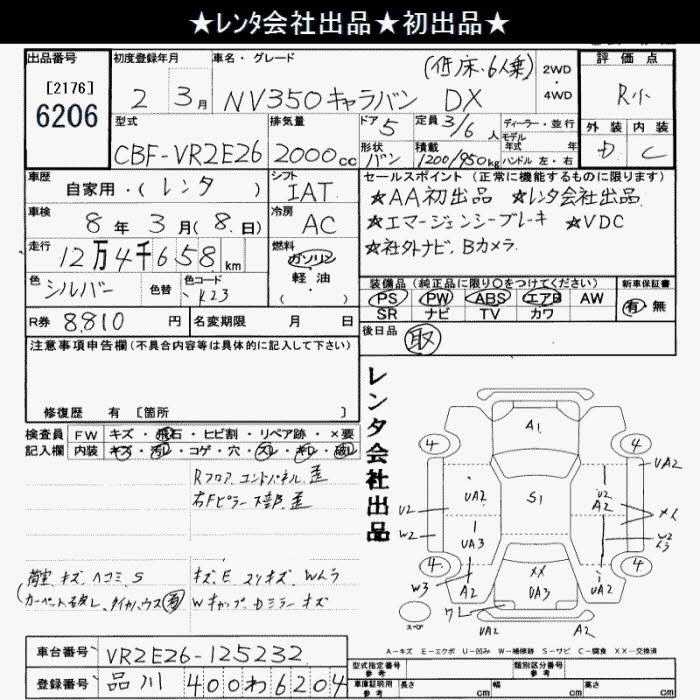 ★レンタ会社出品★初出品★
出品番号
[2176]
6206
初度登録年月
2年 3月
車名・グレード
NV350キャラバン DX
(低床・6人乗)
2WD
・
4WD
評価点
R小
外装 内装
D C
型式
CBF-VR2E26
排気量
2000cc
ドア 5
形状 バン
定員 3/6人
積載 1200/950kg
ディーラー・並行
モデル年式 年式
ハンドル 左・右
車歴
自家用・(レンタ)
シフト
IAT
車検
8年3月(8日)
冷房
AC
走行
12万4千658km
燃料
ガソリン
軽油
・( )
色
シルバー
色替
色コード
K23
R券 8,810円
名変期限 月 日
セールスポイント(正常に機能するものに限ります)
★AA初出品 ★レンタ会社出品
★エマージェンシーブレーキ ★VDC
★社外ナビ、Bカメラ
装備品(純正品に限り○をつけてください)
PS PW ABS エアB AW
SR ナビ TV カワ
新車保証書
有・無
後日品
取
注意事項申告欄(不具合内容等は具体的に記入して下さい)
修復歴 有 [箇所 ]
検査員記入欄
FW キズ・飛石・ヒビ割・リペア跡・×要
内装 キズ・汚レ・コゲ・穴・スレ・キレ・破レ
Rフロア、エンドパネル、歪
右Fピラー下部、歪
荷室 キズ、ヘコミ、S
キズ、E スリキズ Wムラ
レンタ会社出品
4 4 4 4
A1
S1
××
UA3
UA2
UA3
A2
U2
W2
W3
U2
A2
W2
UA2
UA2
UA2
A2
スペア
A−キズ E−エクボ U−凹み W−補修跡 S−サビ C−腐食 ××−交換済
車台番号 VR2E26-125232
登録番号 品川 400わ6204
型式指定番号 参考
類別区分番号 参考
車庫証明用 参考
長さ cm 幅 cm 高さ cm